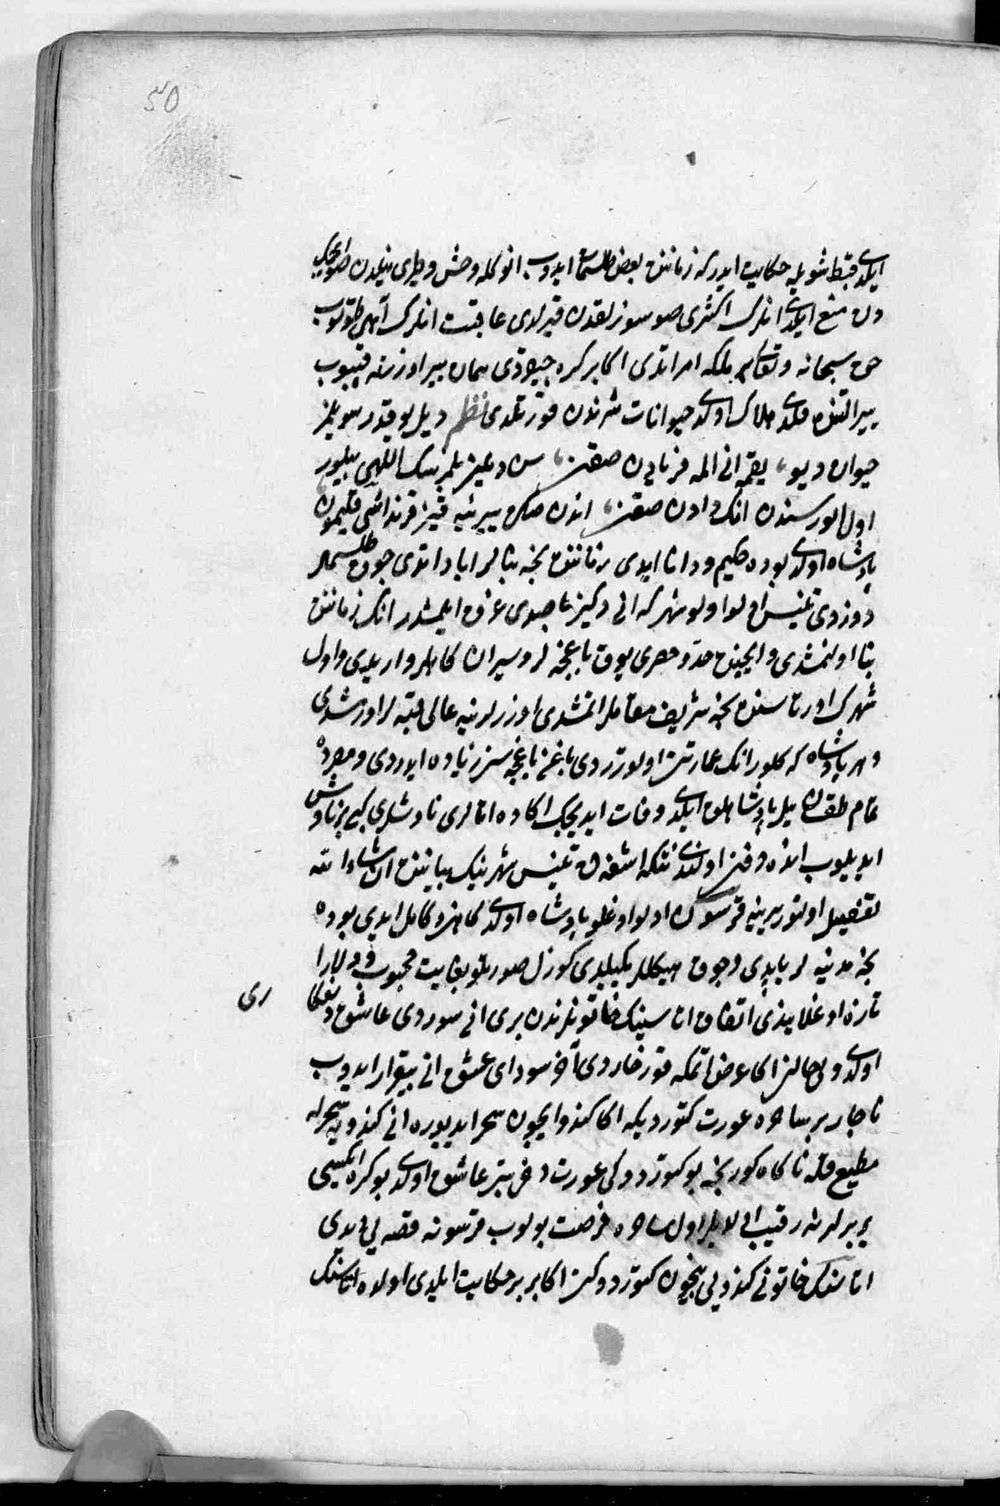 50
ایلدی قبط شویله حکایت ایدر که زماننده بعض طلسمات ایدوب انوکله وحش وطیری نیلدن صو ایچمک
دن منع ایلدی انلرک اکثری صوسوزلقدن قیرلدی عاقبت انلرک آهی طوتوب
حق سبحانه وتعالی ملکه امر اتدی اکا بر کره چیغردی همان ییر اوزرنه
ییر التنده قلدی هلاک اولدی حیوانات شرندن قورتلدی نظم دیل یوقدر سویلمز
حیوان دیو، یقمه انی المه فریادن صقن، سن دغیز بلمز ینک اللهی بیلور
اول الور سندن انک دادن صقن، اندن صکره ییرینه قیز قرنداشی قلیمون
پادشاه اولدی بو ده حکیم ودانا ایدی زماننده نجه بنالر آباد اتدی چوق طلسملر
دوزدی تنیس اولو شهر که انی دکیز باصدی غرق ایلمشدر انک زماننده
بنا اولنمشدی وایچنده حد وحصری یوق باغچه لر وسیران کاهلر وار یدی واول
شهرک اورتاسنده نجه شریف مقاملر اتمشدی اوزرلرینه عالی قبه لر اورمشدی
وهر پادشاه که کلور انک عمارتن اولو زردی باغن باغچه سن زیاده ایدردی
تمام طقسان ییل پادشاهلق ایلدی وفات ایدیجک اکا ده اتالری ناوشلری کبی بر ناوش
ایدیلوب انده دفن اولندی نتکه اشغه ده تنیس شهرینک بیاننده ان شاء الله
تفصیل اولنور ییرینه قرسون اولو اوغلو پادشاه اولدی کاهن وکامل ایدی بو ده
نجه مدینه لر یاپدی وچوق هیکللر یکیلدی کوزل صورتلو بغایت محبوب ودلارا
تازه اوغلانیدی اتفاق اتاسینک خاتونلرندن بری انی سوردی عاشق
ری
اولدی ولی حالن اکا عرض اتمکه قورخاردی آخر سودای عشق انی بیقرار ایدوب
ناچار بر ساحره عورت کتوردیکه اکا کندو ایچون سحر ایدیویره انی کندویه سحرله
مطیع قله ناکاه کوریجه بو کتوردوکی عورت دخی بتر عاشق اولدی بو کره ایکیسی
بربرلرنه رقیب اولدیلر اول ساحره فرصت بولوب قرسونه قصه یی دیدی
اتاسنک خاتونی کندویی نیچون کتوردوکن اکا بر بر حکایت ایلدی اولده اتاسنک